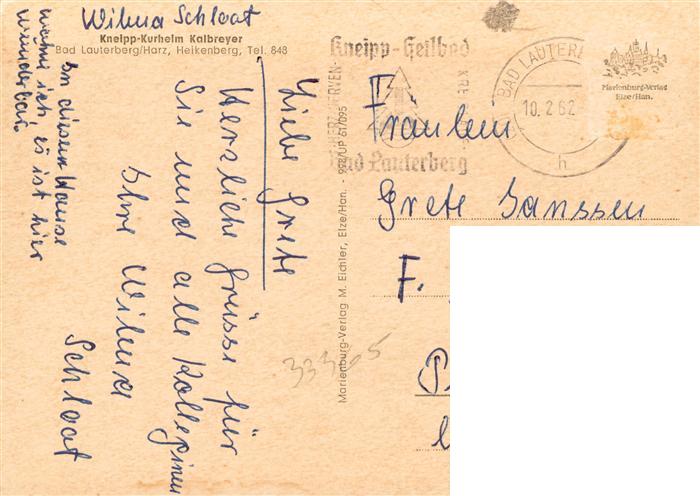 Wilma Schloat
Kneipp-Kurheim Kalbreyer
Bad Lauterberg/Harz, Heikenberg, Tel. 848
In diesem Hause
wohne ich, es ist hier
wunderbar.
Liebe Grete
Herzliche Grüsse für
Sie und alle Kolleginnen
Ihre Wilma
Schloat
33365
Marienburg-Verlag M. Eichler, Elze/Han. - 992/UP 61/095
Kneipp-Heilbad
HERZ NERVEN
Bad Lauterberg
BAD LAUTERB
10.2.62
h
Marienburg-Verlag
Elze/Han.
Fräulein
Grete Janssen
F.